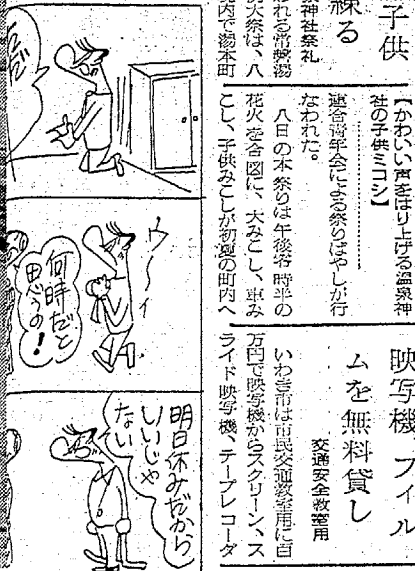 子供
練る
神社祭礼
われる常磐湯
火祭は、八
内で湯本町
【かわいい声をはり上げる温泉神
社の子供ミコシ】
連合青年会による祭りばやしが行
なわれた。
八日の本祭りは午後零時半の
花火を合図に、大みこし、車み
こし、子供みこしが初夏の町内へ
映写機 フィル
ムを無料貸し
交通安全教室用
いわき市は市民交通教室用に百
万円で映写機からスクリーン、ス
ライド映写機、テープレコーダ
ウ〜イ
何時だと
思うの!
明日休みだから
いいじゃ
ない